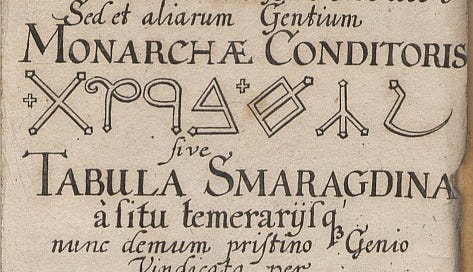 Sed et aliarum Gentium
MONARCHÆ CONDITORIS
sive
TABULA SMARAGDINA
à situ temerarijsq́
nunc demum pristino Genio
Vindicata per